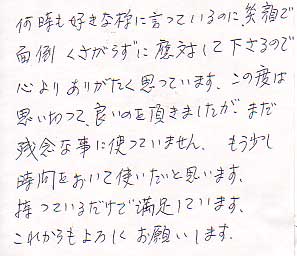 何時も好きな様に言っているのに笑顔で
面倒くさがらずに應対して下さるので
心よりありがたく思っています。この度は
思い切って良いのを頂きましたが、まだ
残念な事に使っていません。もう少し
時間をおいて使いたいと思います。
持っているだけで満足しています。
これからもよろしくお願いします。